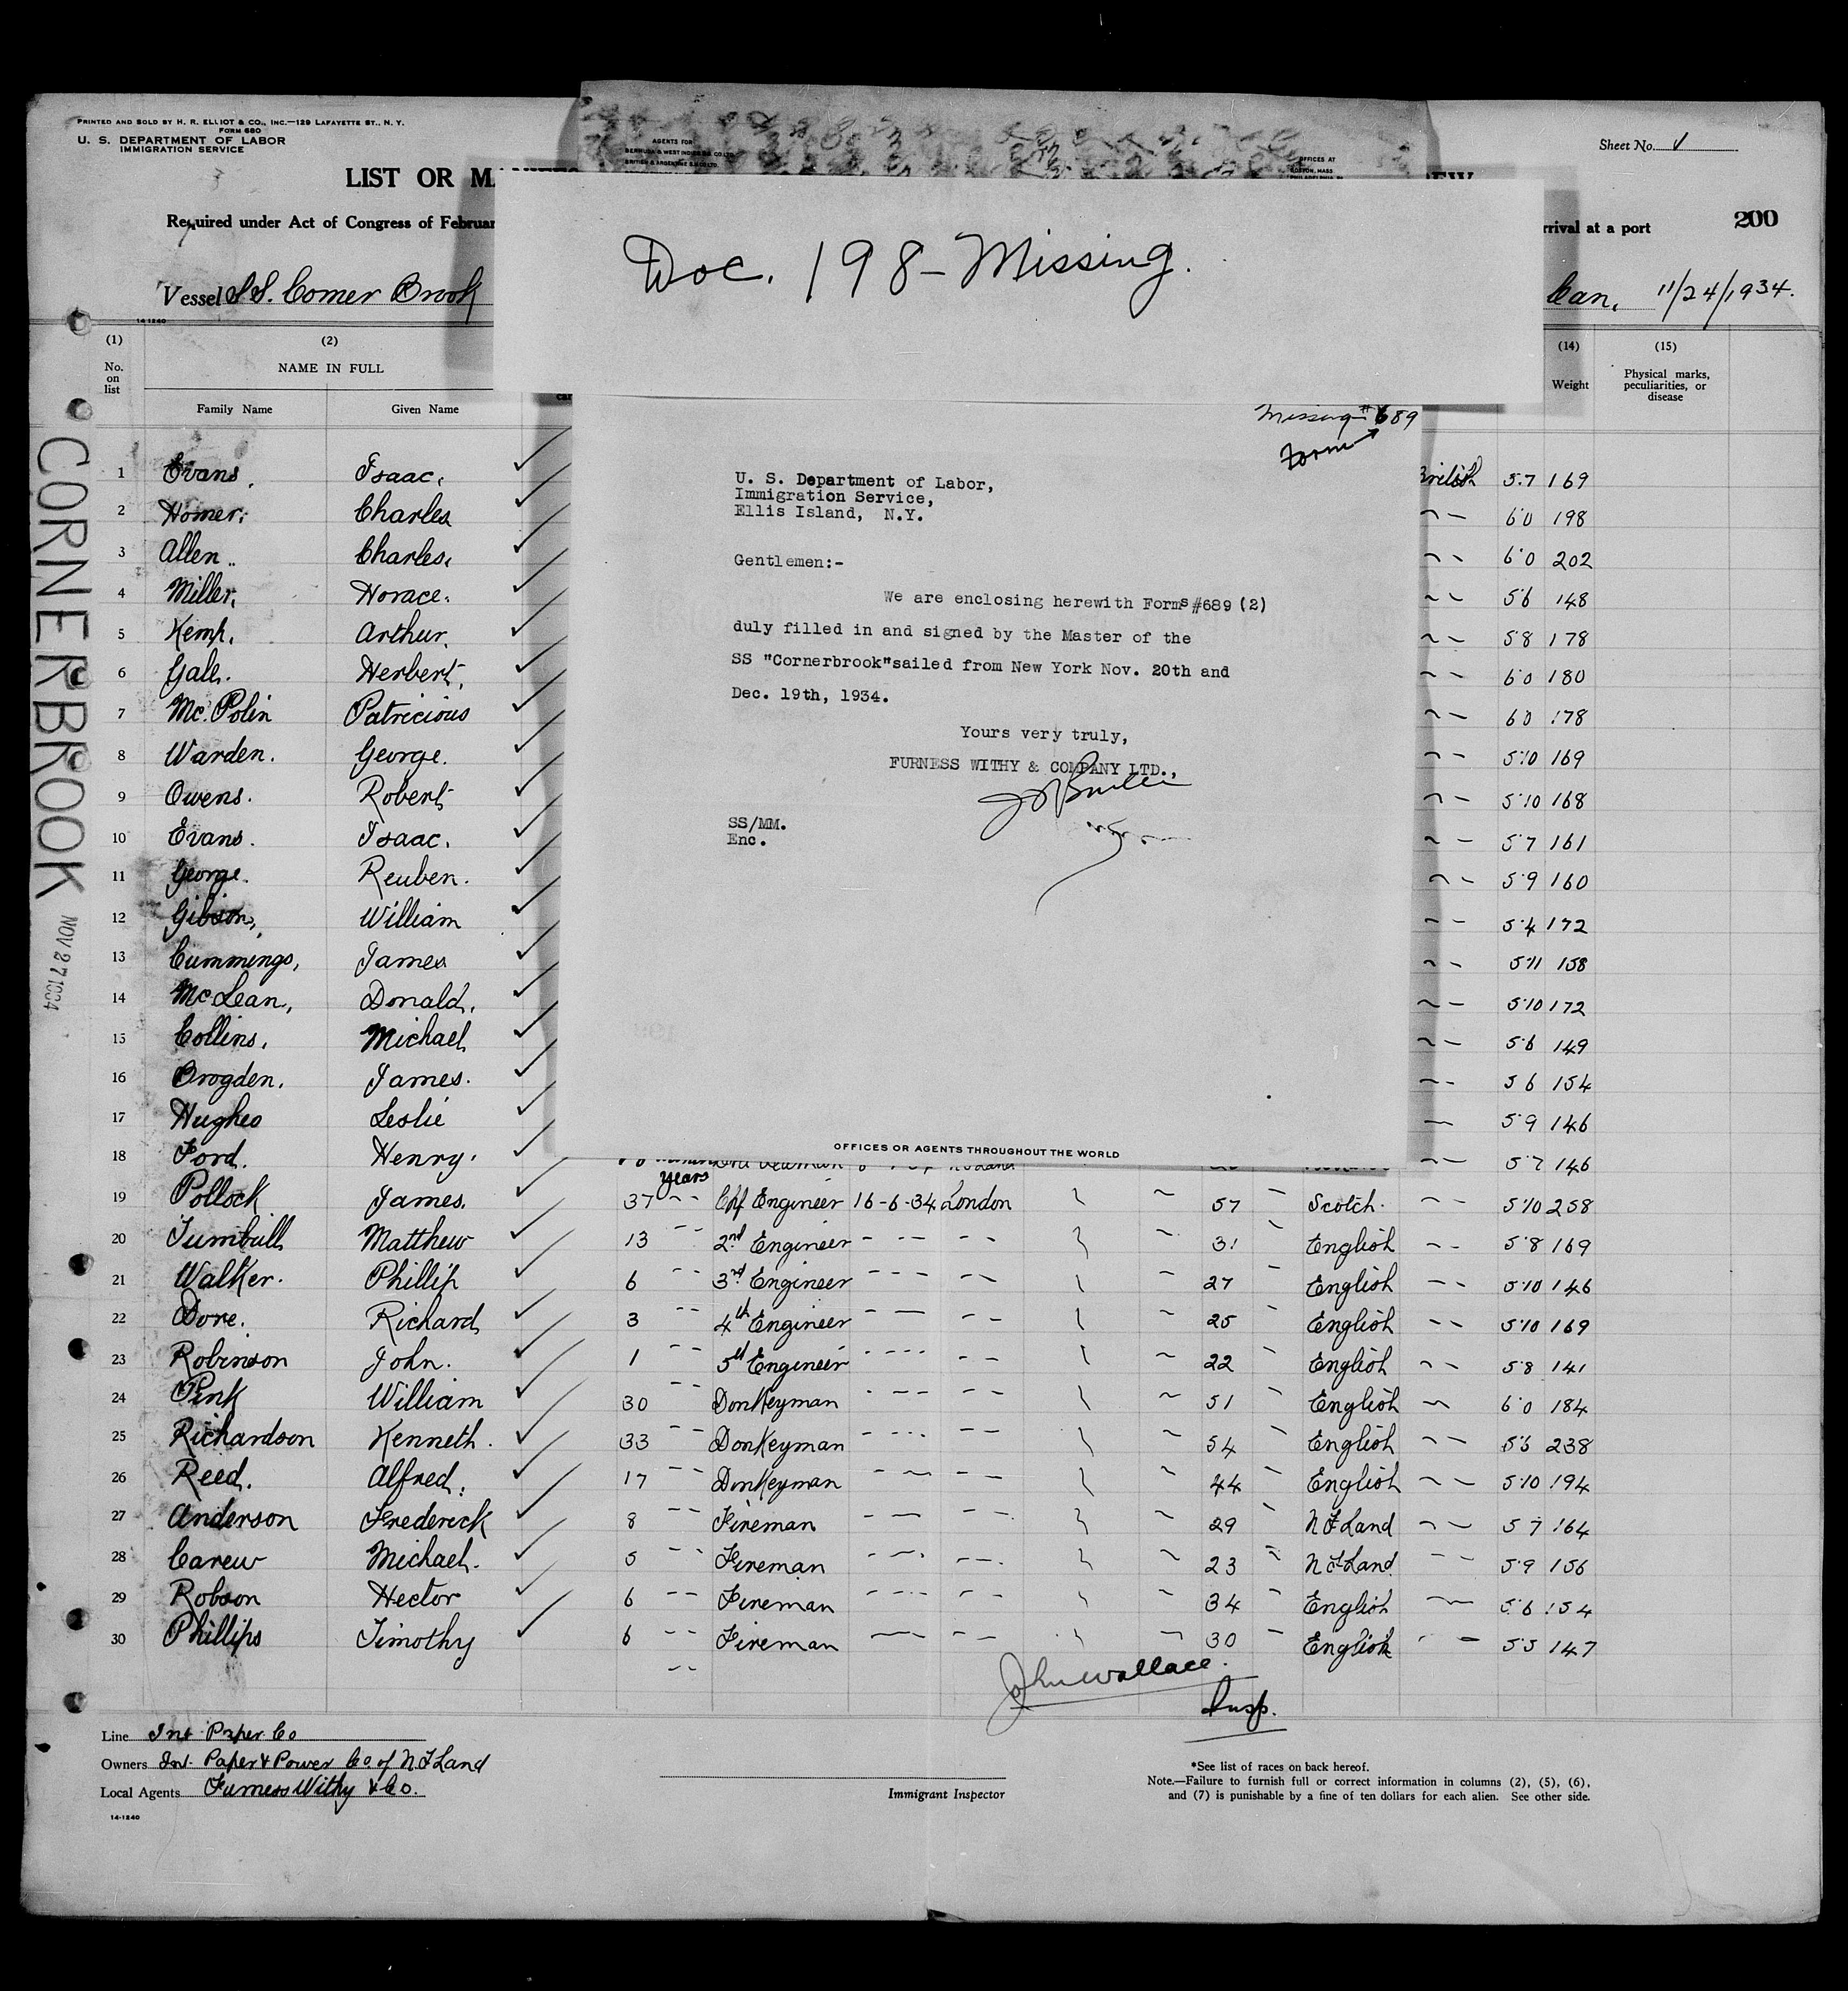 PRINTED AND SOLD BY H. R. ELLIOT & CO., INC.—129 LAFAYETTE ST., N. Y.
FORM 680
U. S. DEPARTMENT OF LABOR
IMMIGRATION SERVICE
AGENTS FOR
BERMUDA & WEST INDIES S.S. CO. LTD.
BRITISH & ARGENTINE S.N. CO. LTD.
OFFICES AT
BOSTON, MASS.
Sheet No. 
LIST OR
Required under Act of Congress of Februar
rrival at a port
200
Doc. 198 - Missing.
Vessel S.S. Corner Brook
Can, 11/24/1934.
14-1240
(1) (2) (14) (15)
No. on list
NAME IN FULL
Weight
Physical marks, peculiarities, or disease
Family Name Given Name
Missing # 689
Form
CORNERBROOK
NOV 27 1934
U. S. Department of Labor,
Immigration Service,
Ellis Island, N.Y.
Gentlemen:-
We are enclosing herewith Forms #689 (2)
duly filled in and signed by the Master of the
SS "Cornerbrook" sailed from New York Nov. 20th and
Dec. 19th, 1934.
Yours very truly,
FURNESS WITHY & COMPANY LTD.,
SS/MM.
Enc.
OFFICES OR AGENTS THROUGHOUT THE WORLD
1 Evans, Isaac, British 5.7 169
2 Homer, Charles 6.0 198
3 Allen .. Charles, 6.0 202
4 Miller, Horace. 5.6 148
5 Kemp, Arthur. 5.8 178
6 Gall. Herbert, 6.0 180
7 Mc. Polin Patricious 6.0 178
8 Warden. George. 5.10 169
9 Owens. Robert 5.10 168
10 Evans. Isaac. 5.7 161
11 George. Reuben. 5.9 160
12 Gibson, William 5.4 172
13 Cummings, James 5.11 158
14 McLean, Donald. 5.10 172
15 Collins, Michael 5.6 149
16 Brogden. James. 5.6 154
17 Hughes Leslie 5.9 146
18 Ford. Henry. 5.7 146
years
19 Pollock James. 37 Chf Engineer 16-6-34 London 57 Scotch. 5.10 258
20 Turnbull Matthew 13 2nd Engineer 31 English 5.8 169
21 Walker. Phillip 6 3rd Engineer 27 English 5.10 146
22 Dore. Richard 3 4th Engineer 25 English 5.10 169
23 Robinson John. 1 5th Engineer 22 English 5.8 141
24 Pink William 30 Donkeyman 51 English 6.0 184
25 Richardson Kenneth. 33 Donkeyman 54 English 5.6 238
26 Reed. Alfred. 17 Donkeyman 44 English 5.10 194
27 Anderson Frederick 8 Fireman 29 N.F.Land 5.7 164
28 Carew Michael. 5 Fireman 23 N.F.Land 5.9 156
29 Robson Hector 6 Fireman 34 English 5.6 154
30 Phillips Timothy 6 Fireman 30 English 5.5 147
John Wallace.
Insp.
Line Int Paper Co
Owners Int. Paper & Power Co. of N.F.Land
Local Agents Furness Withy & Co.
14-1240
Immigrant Inspector
*See list of races on back hereof.
Note.—Failure to furnish full or correct information in columns (2), (5), (6),
and (7) is punishable by a fine of ten dollars for each alien. See other side.